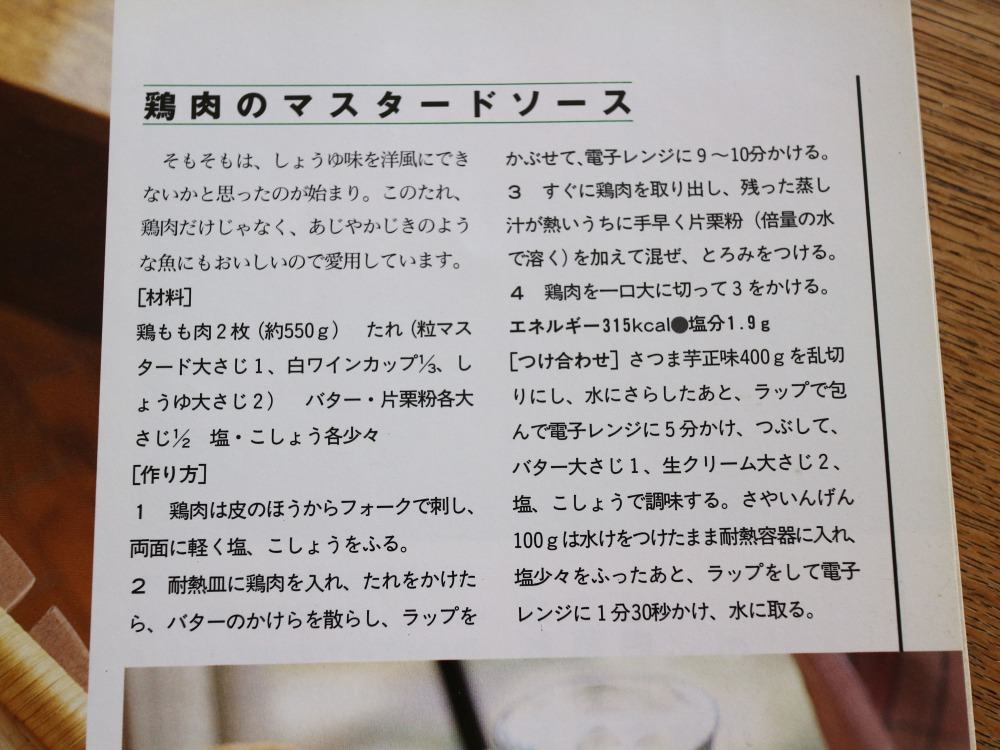 鶏肉のマスタードソース
そもそもは、しょうゆ味を洋風にでき
ないかと思ったのが始まり。このたれ、
鶏肉だけじゃなく、あじやかじきのよう
な魚にもおいしいので愛用しています。
[材料]
鶏もも肉2枚(約550g)　たれ(粒マス
タード大さじ1、白ワインカップ⅓、し
ょうゆ大さじ2)　バター・片栗粉各大
さじ½　塩・こしょう各少々
[作り方]
1　鶏肉は皮のほうからフォークで刺し、
両面に軽く塩、こしょうをふる。
2　耐熱皿に鶏肉を入れ、たれをかけた
ら、バターのかけらを散らし、ラップを
かぶせて、電子レンジに9〜10分かける。
3　すぐに鶏肉を取り出し、残った蒸し
汁が熱いうちに手早く片栗粉(倍量の水
で溶く)を加えて混ぜ、とろみをつける。
4　鶏肉を一口大に切って3をかける。
エネルギー315kcal●塩分1.9g
[つけ合わせ]さつま芋正味400gを乱切
りにし、水にさらしたあと、ラップで包
んで電子レンジに5分かけ、つぶして、
バター大さじ1、生クリーム大さじ2、
塩、こしょうで調味する。さやいんげん
100gは水けをつけたまま耐熱容器に入れ、
塩少々をふったあと、ラップをして電子
レンジに1分30秒かけ、水に取る。